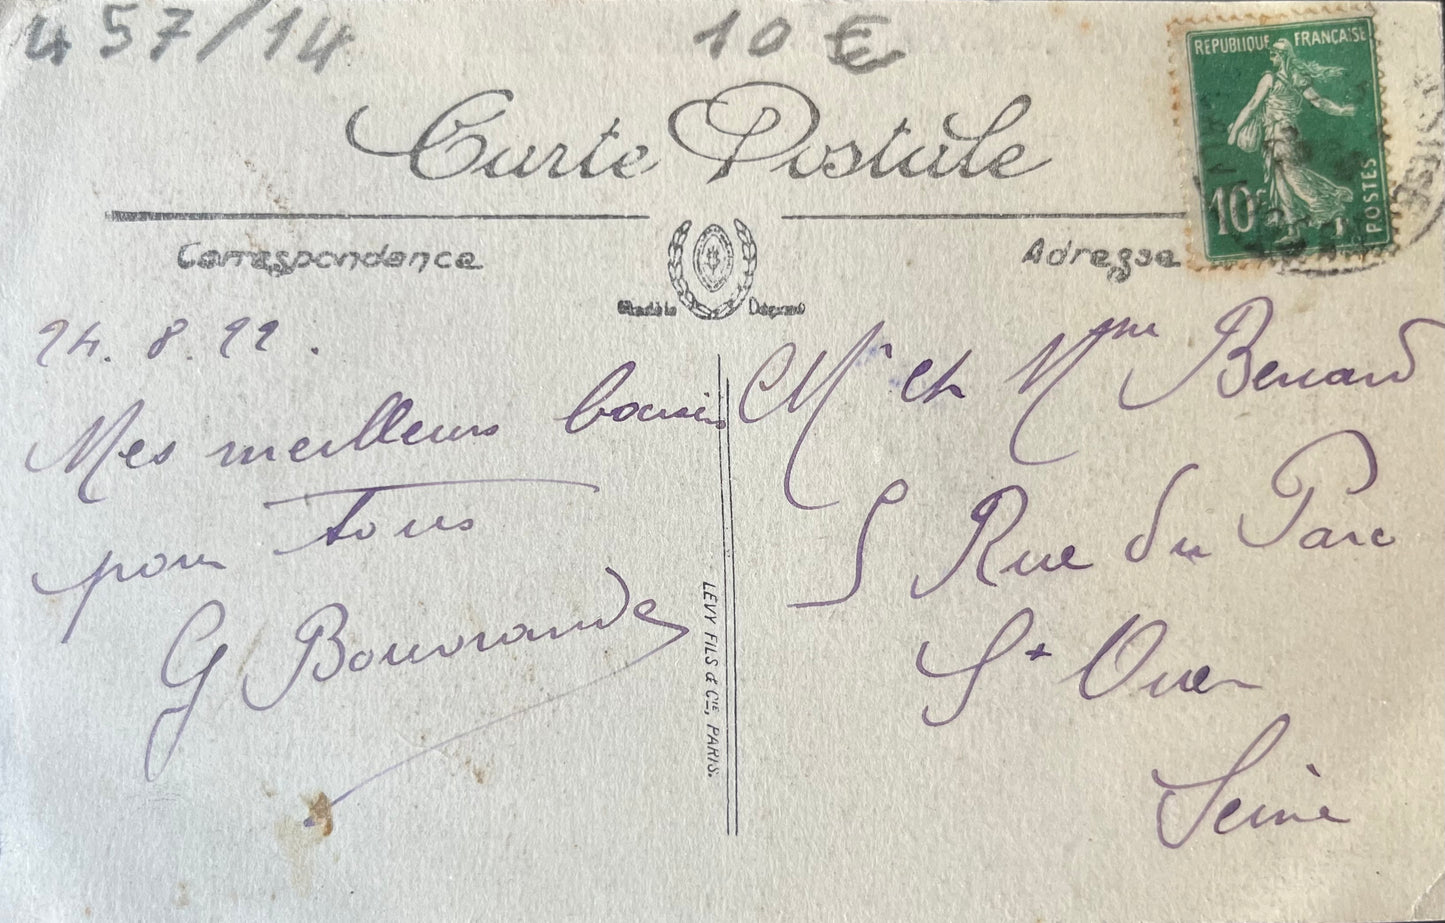 457/14
10 €
Carte Postale
REPUBLIQUE FRANÇAISE
10c
POSTES
Correspondance
Adresse
24.8.22.
Mes meilleurs baisers
pour tous
G
Mr et Mme Benard
5 Rue du Parc
St Ouen
Seine
LEVY FILS & CIE, PARIS.